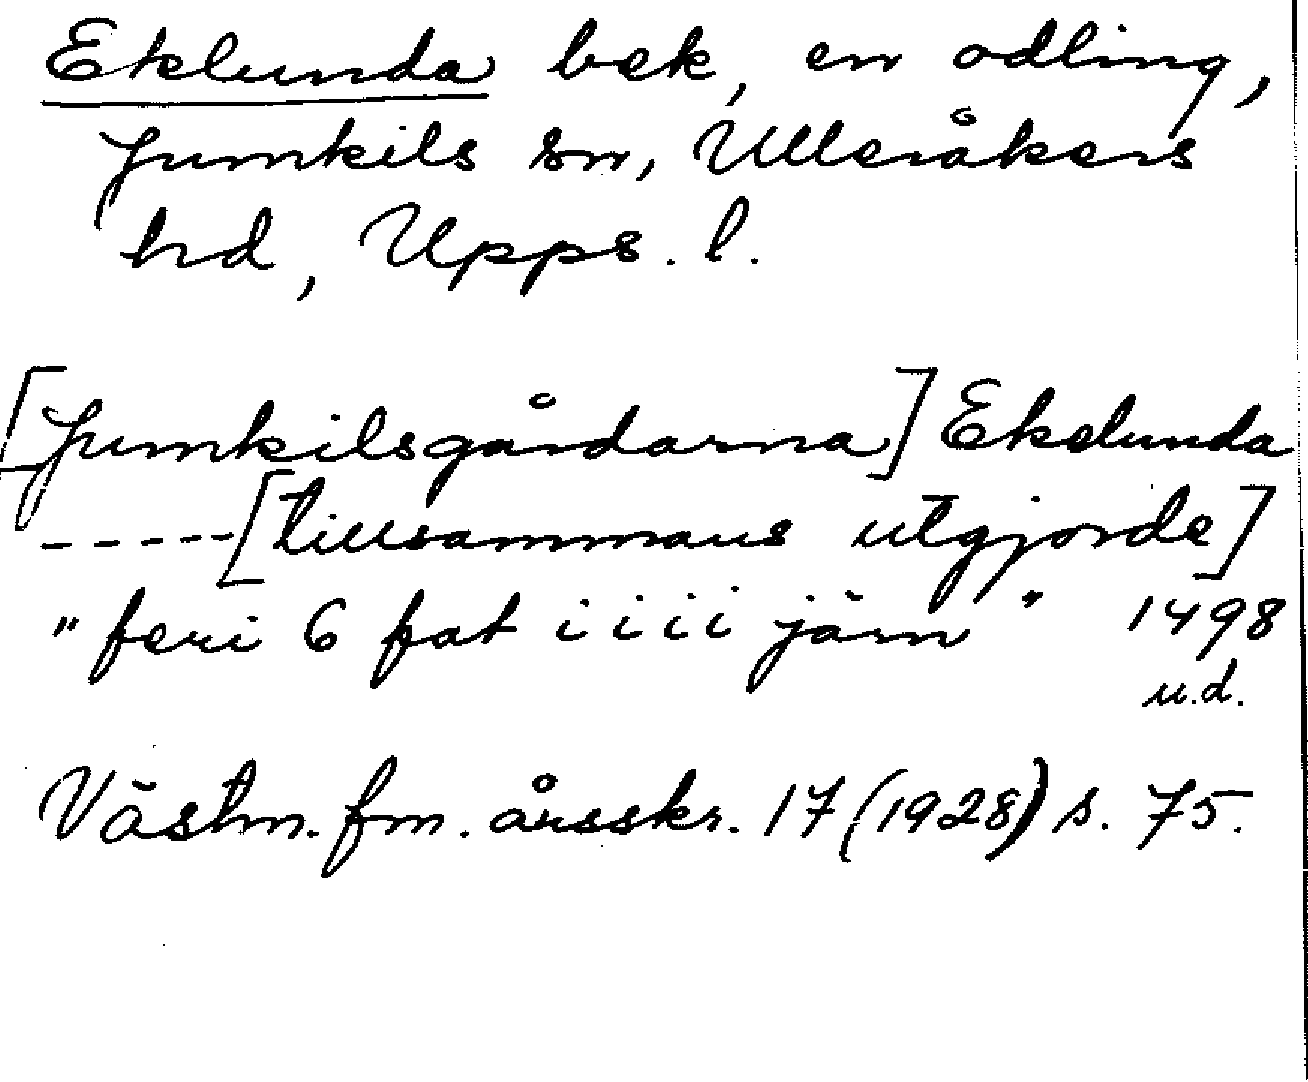 Eklunda bek, en odling,
Jumkils sn, Ulleråkers
hd, Upps. l.
[Jumkilsgårdarna] Ekelunda
-----[tillsammans utgjorde]
"feri 6 fat iiii järn" 1498
u.d.
Västm. fm. årsskr. 17 (1928) s. 75.